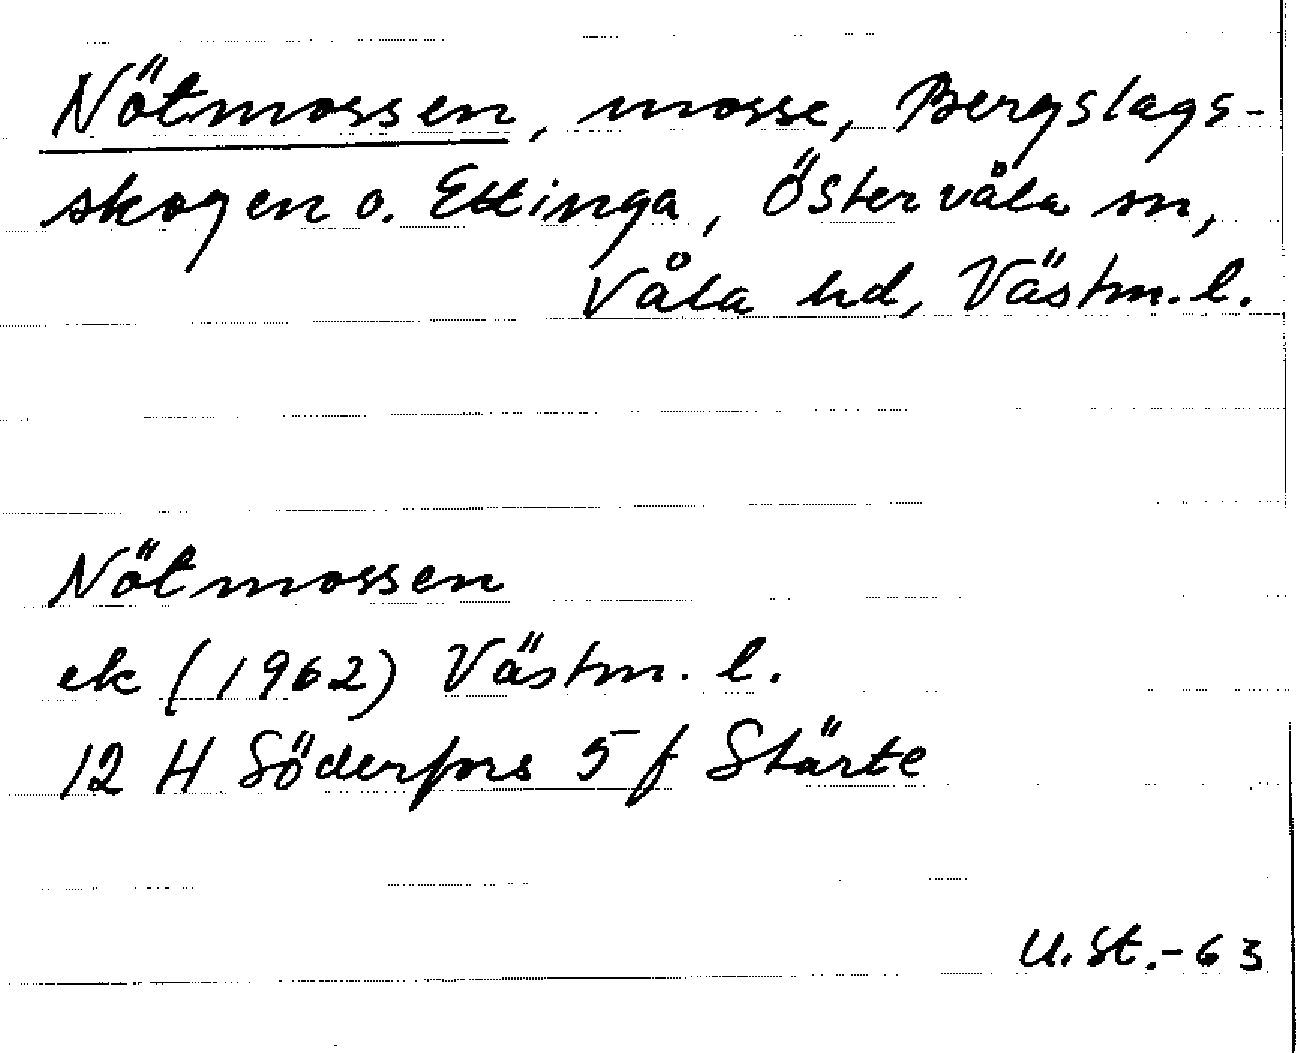 Nötmossen, mosse, Bergslags-
skogen o. Ettinga, Östervåla sn,
Våla hd, Västm. l.
Nötmossen
ek (1962) Västm. l.
12 H Söderfors 5 f Stärte
U. St. - 63